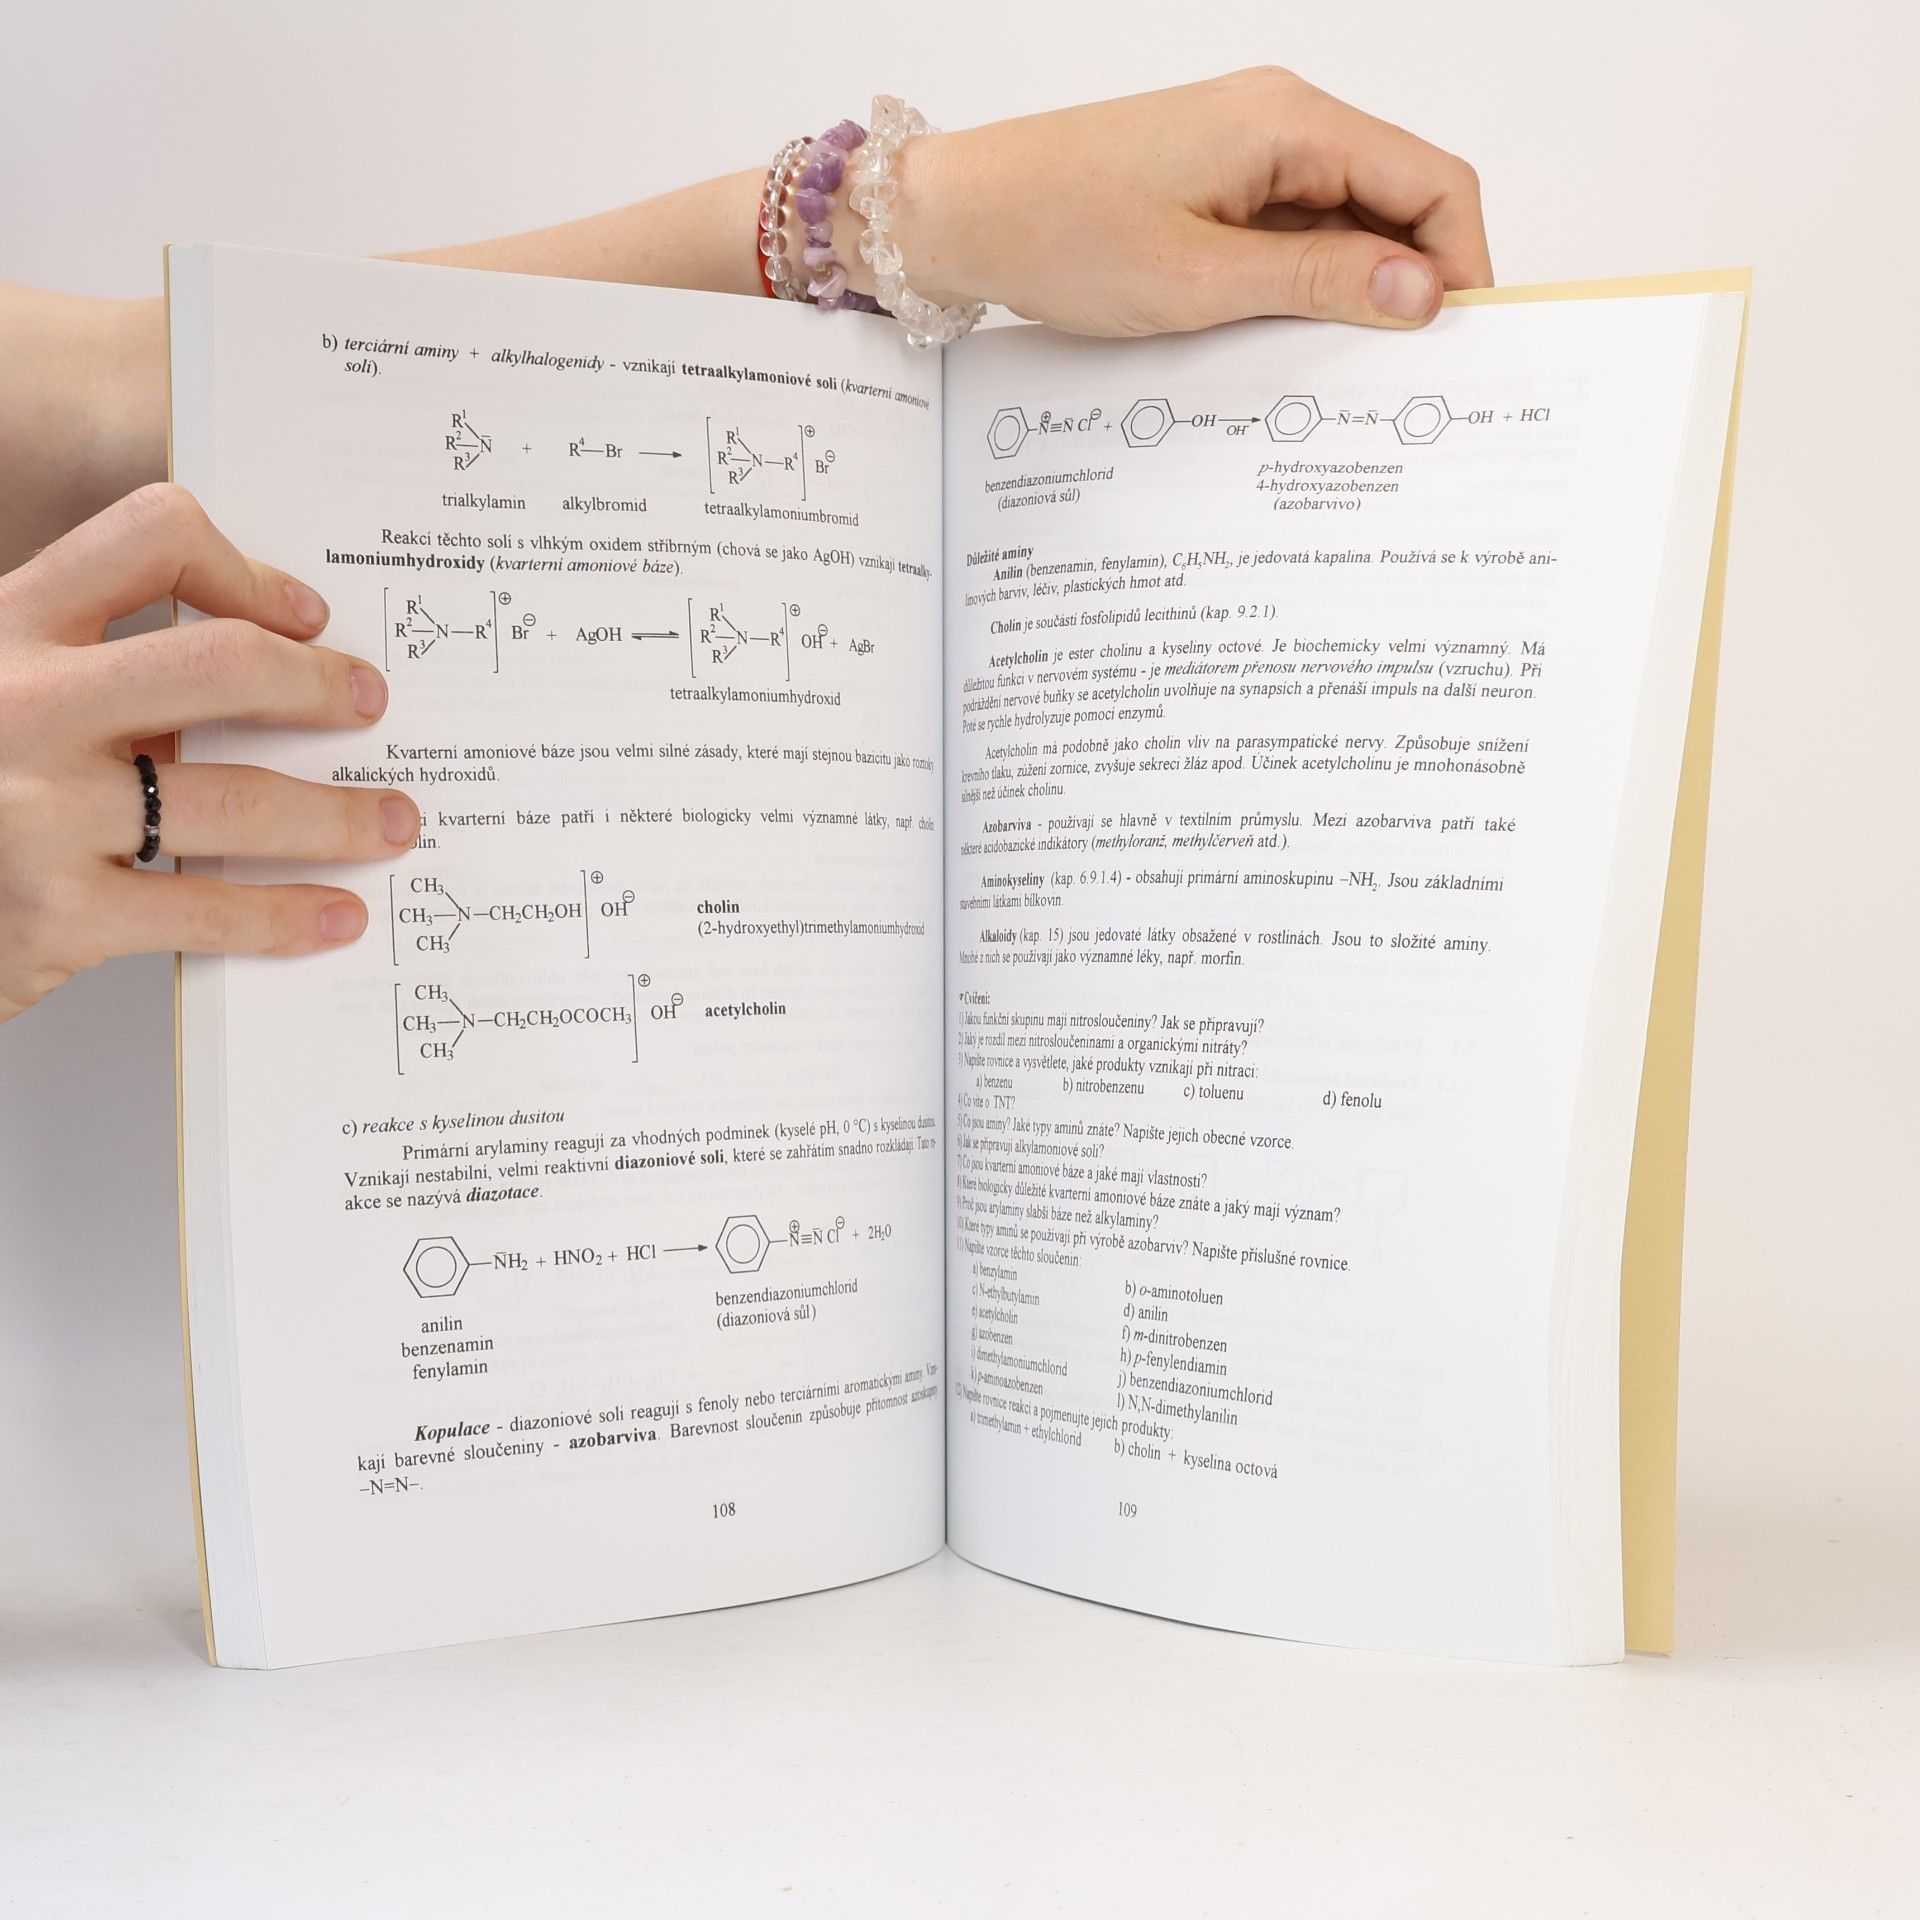 b) terciární aminy + alkylhalogenidy - vznikají tetraalkylamoniové soli (kvarterní amoniové
soli).
R¹
R²—N̄ + R⁴—Br ⟶ [R¹ R²—N—R⁴ R³]⊕ Br⊖
R³
trialkylamin alkylbromid tetraalkylamoniumbromid
Reakcí těchto solí s vlhkým oxidem stříbrným (chová se jako AgOH) vznikají tetraalky-
lamoniumhydroxidy (kvarterní amoniové báze).
[R¹ R²—N—R⁴ R³]⊕ Br⊖ + AgOH ⇌ [R¹ R²—N—R⁴ R³]⊕ OH⊖ + AgBr
tetraalkylamoniumhydroxid
Kvarterní amoniové báze jsou velmi silné zásady, které mají stejnou bazicitu jako roztoky
alkalických hydroxidů.
kvarterní báze patří i některé biologicky velmi významné látky, např. cholin
[CH₃ CH₃—N—CH₂CH₂OH CH₃]⊕ OH⊖ cholin
(2-hydroxyethyl)trimethylamoniumhydroxid
[CH₃ CH₃—N—CH₂CH₂OCOCH₃ CH₃]⊕ OH⊖ acetylcholin
c) reakce s kyselinou dusitou
Primární arylaminy reagují za vhodných podmínek (kyselé pH, 0 °C) s kyselinou dusitou.
Vznikají nestabilní, velmi reaktivní diazoniové soli, které se zahřátím snadno rozkládají. Tato re-
akce se nazývá diazotace.
—N̄H₂ + HNO₂ + HCl ⟶ —N⊕≡N̄ Cl⊖ + 2H₂O
anilin benzendiazoniumchlorid
benzenamin (diazoniová sůl)
fenylamin
Kopulace - diazoniové soli reagují s fenoly nebo terciárními aromatickými aminy. Vzni-
kají barevné sloučeniny - azobarviva. Barevnost sloučenin způsobuje přítomnost azoskupiny
–N=N–.
108
—N⊕≡N̄ Cl⊖ + —OH ⟶ OH⁻ —N̄=N̄— —OH + HCl
benzendiazoniumchlorid p-hydroxyazobenzen
(diazoniová sůl) 4-hydroxyazobenzen
(azobarvivo)
Důležité aminy
Anilin (benzenamin, fenylamin), C₆H₅NH₂, je jedovatá kapalina. Používá se k výrobě ani-
linových barviv, léčiv, plastických hmot atd.
Cholin je součástí fosfolipidů lecithinů (kap. 9.2.1).
Acetylcholin je ester cholinu a kyseliny octové. Je biochemicky velmi významný. Má
důležitou funkci v nervovém systému - je mediátorem přenosu nervového impulsu (vzruchu). Při
podráždění nervové buňky se acetylcholin uvolňuje na synapsích a přenáší impuls na další neuron.
Poté se rychle hydrolyzuje pomocí enzymů.
Acetylcholin má podobně jako cholin vliv na parasympatické nervy. Způsobuje snížení
krevního tlaku, zúžení zornice, zvyšuje sekreci žláz apod. Účinek acetylcholinu je mnohonásobně
silnější než účinek cholinu.
Azobarviva - používají se hlavně v textilním průmyslu. Mezi azobarviva patří také
některé acidobazické indikátory (methyloranž, methylčerveň atd.).
Aminokyseliny (kap. 6.9.1.4) - obsahují primární aminoskupinu –NH₂. Jsou základními
stavebními látkami bílkovin.
Alkaloidy (kap. 15) jsou jedovaté látky obsažené v rostlinách. Jsou to složité aminy.
Mnohé z nich se používají jako významné léky, např. morfin.
Cvičení:
1) Jakou funkční skupinu mají nitrosloučeniny? Jak se připravují?
2) Jaký je rozdíl mezi nitrosloučeninami a organickými nitráty?
3) Napište rovnice a vysvětlete, jaké produkty vznikají při nitraci:
a) benzenu b) nitrobenzenu c) toluenu d) fenolu
4) Co víte o TNT?
5) Co jsou aminy? Jaké typy aminů znáte? Napište jejich obecné vzorce.
6) Jak se připravují alkylamoniové soli?
7) Co jsou kvarterní amoniové báze a jaké mají vlastnosti?
8) Které biologicky důležité kvarterní amoniové báze znáte a jaký mají význam?
9) Proč jsou arylaminy slabší báze než alkylaminy?
10) Které typy aminů se používají při výrobě azobarviv? Napište příslušné rovnice.
11) Napište vzorce těchto sloučenin:
a) benzylamin b) o-aminotoluen
c) N-ethylbutylamin d) anilin
e) acetylcholin f) m-dinitrobenzen
g) azobenzen h) p-fenylendiamin
i) dimethylamoniumchlorid j) benzendiazoniumchlorid
k) p-aminoazobenzen l) N,N-dimethylanilin
12) Napište rovnice reakcí a pojmenujte jejich produkty:
a) trimethylamin + ethylchlorid b) cholin + kyselina octová
109